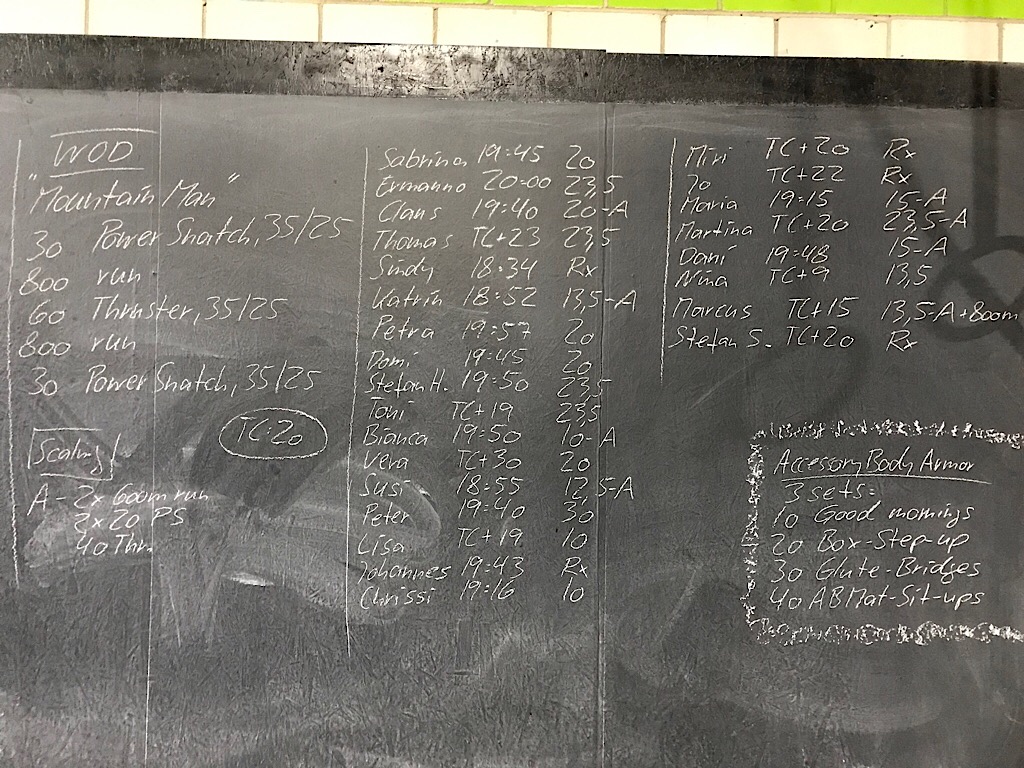 WOD
"Mountain Man"
30 Power Snatch, 35/25
800 run
60 Thruster, 35/25
800 run
30 Power Snatch, 35/25
TC:20
Scaling
A - 2x 600m run
2x20 PS
40 Thr.
Sabrina 19:45 20
Ermanno 20:00 23,5
Claus 19:40 20-A
Thomas TC+23 23,5
Sindy 18:34 Rx
Katrin 18:52 13,5-A
Petra 19:57 20
Domi 19:45 20
Stefan H. 19:50 23,5
Toni TC+19 23,5
Bianca 19:50 10-A
Vera TC+30 20
Susi 18:55 12,5-A
Peter 19:40 30
Lisa TC+19 10
Johannes 19:43 Rx
Chrissi 17:16 10
Miri TC+20 Rx
Jo TC+22 Rx
Maria 19:15 15-A
Martina TC+20 23,5-A
Dani 19:48 15-A
Nina TC+9 13,5
Marcus TC+15 13,5-A+800m
Stefan S. TC+20 Rx
Accessory Body Armor
3 sets:
10 Good mornings
20 Box-Step-up
30 Glute-Bridges
40 ABMat-Sit-ups